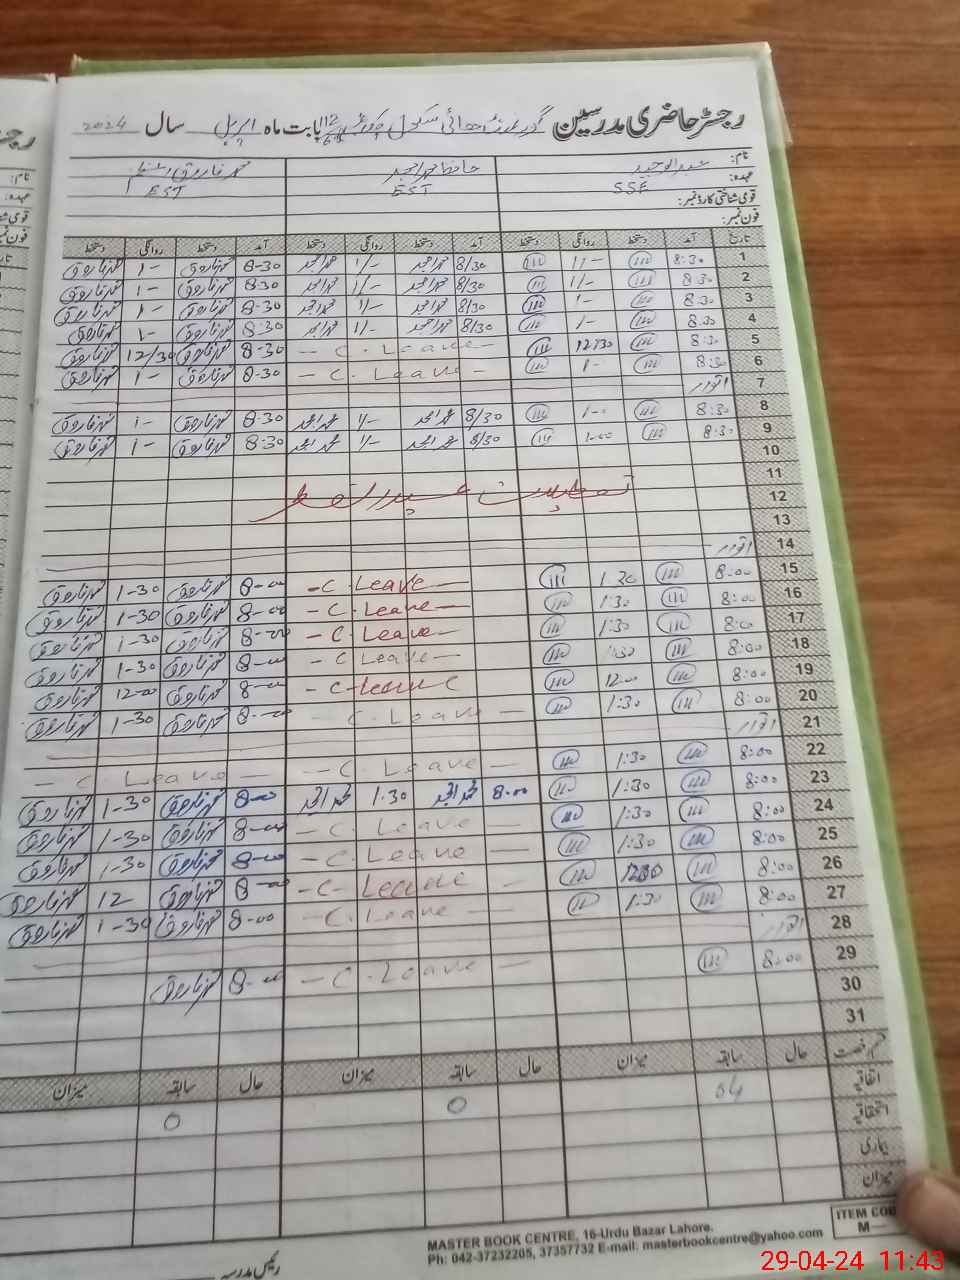 رجسٹر حاضری مدرسین گورنمنٹ ہائی سکول بابت ماہ اپریل سال 2024
نام: عبدالوحید حافظ محمد امجد محمد فاروق
عہدہ: SSE EST EST
قومی شناختی کارڈ نمبر:
فون نمبر:
تاریخ آمد دستخط روانگی دستخط آمد دستخط روانگی دستخط آمد دستخط روانگی دستخط
1 8:30 1/- 8/30 محمد امجد 1/- محمد امجد 8-30 محمد فاروق 1- محمد فاروق
2 8:30 1/- 8/30 محمد امجد 1/- محمد امجد 8:30 محمد فاروق 1- محمد فاروق
3 8:30 1- 8/30 محمد امجد 1/- محمد امجد 8-30 محمد فاروق 1- محمد فاروق
4 8:30 1- 8/30 محمد امجد 1/- محمد امجد 8:30 محمد فاروق 1- محمد فاروق
5 8:30 12:30 - C. Leave - 8-30 محمد فاروق 12/30 محمد فاروق
6 8:30 1- - C. Leave - 8-30 محمد فاروق 1- محمد فاروق
7 اتوار
8 8:30 1-0 8/30 محمد امجد 1/- محمد امجد 8-30 محمد فاروق 1- محمد فاروق
9 8:30 1-00 8/30 محمد امجد 1/- محمد امجد 8:30 محمد فاروق 1- محمد فاروق
10
11
12 تعطیلات عیدالفطر
13
14 اتوار
15 8:00 1:30 - C. Leave - 8-00 محمد فاروق 1-30 محمد فاروق
16 8:00 1:30 - C. Leave - 8-00 محمد فاروق 1-30 محمد فاروق
17 8:00 1:30 - C. Leave - 8-00 محمد فاروق 1-30 محمد فاروق
18 8:00 1:30 - C Leave - 8-00 محمد فاروق 1-30 محمد فاروق
19 8:00 12:00 - C-Leave 8-00 محمد فاروق 12-00 محمد فاروق
20 8:00 1:30 - C. Leave - 8-00 محمد فاروق 1-30 محمد فاروق
21 اتوار
22 8:00 1:30 - C. Leave - - C Leave -
23 8:00 1:30 8:00 محمد امجد 1.30 محمد امجد 8-00 محمد فاروق 1-30 محمد فاروق
24 8:00 1:30 - C. Leave - 8-00 محمد فاروق 1-30 محمد فاروق
25 8:00 1:30 - C. Leave - 8-00 محمد فاروق 1-30 محمد فاروق
26 8:00 - C- Leave - 8-00 محمد فاروق 12 محمد فاروق
27 8:00 1:30 - C. Leave - 8-00 محمد فاروق 1-30 محمد فاروق
28 اتوار
29 8:00 - C. Leave - 8-00 محمد فاروق
30
31
قسم رخصت حال سابقہ میزان حال سابقہ میزان حال سابقہ میزان
اتفاقیہ 04 0 0
استحقاقیہ
بیماری
میزان
رئیس مدرسہ
MASTER BOOK CENTRE, 16-Urdu Bazar Lahore.
Ph: 042-37232205, 37357732 E-mail: masterbookcentre@yahoo.com
ITEM COD
M—
29-04-24 11:43